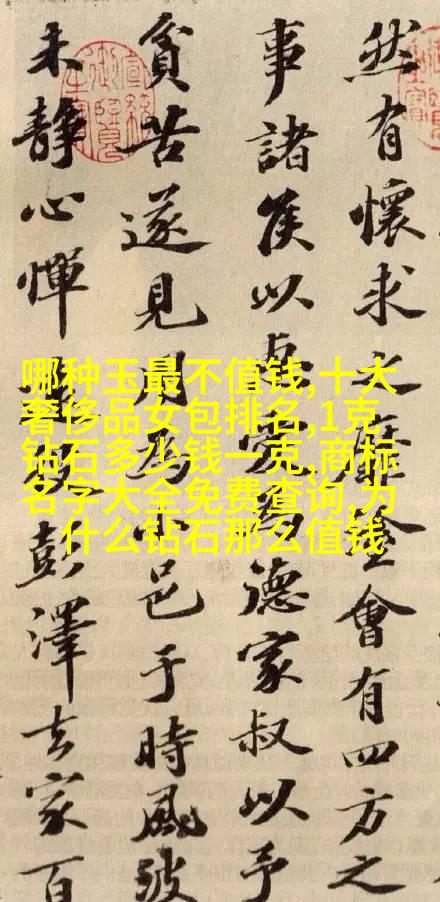 哪种玉最不值钱,十大
奢侈品女包排名,1克
钻石多少钱一克,商标
名字大全免费查询,为
什么钻石那么值钱
然有懷求之靡會有四方之
事諸侯以德家叔以予
貧苦遂見用為邑于時風波
未靜心憚彭澤去家百